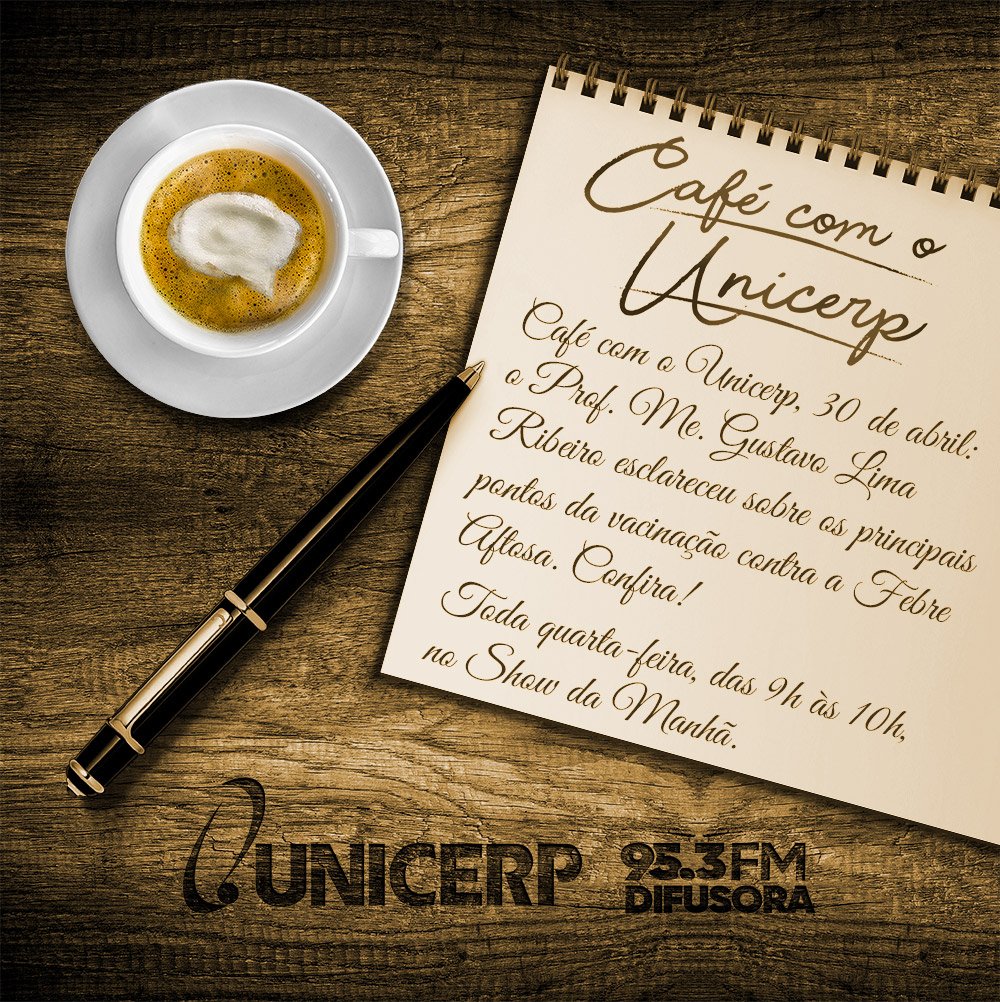 Café com o
Unicerp
Café com o Unicerp, 30 de abril:
o Prof. Me. Gustavo Lima
Ribeiro esclareceu sobre os principais
pontos da vacinação contra a Febre
Aftosa. Confira!
Toda quarta-feira, das 9h às 10h,
no Show da Manhã.
UNICERP
95.3 FM
DIFUSORA